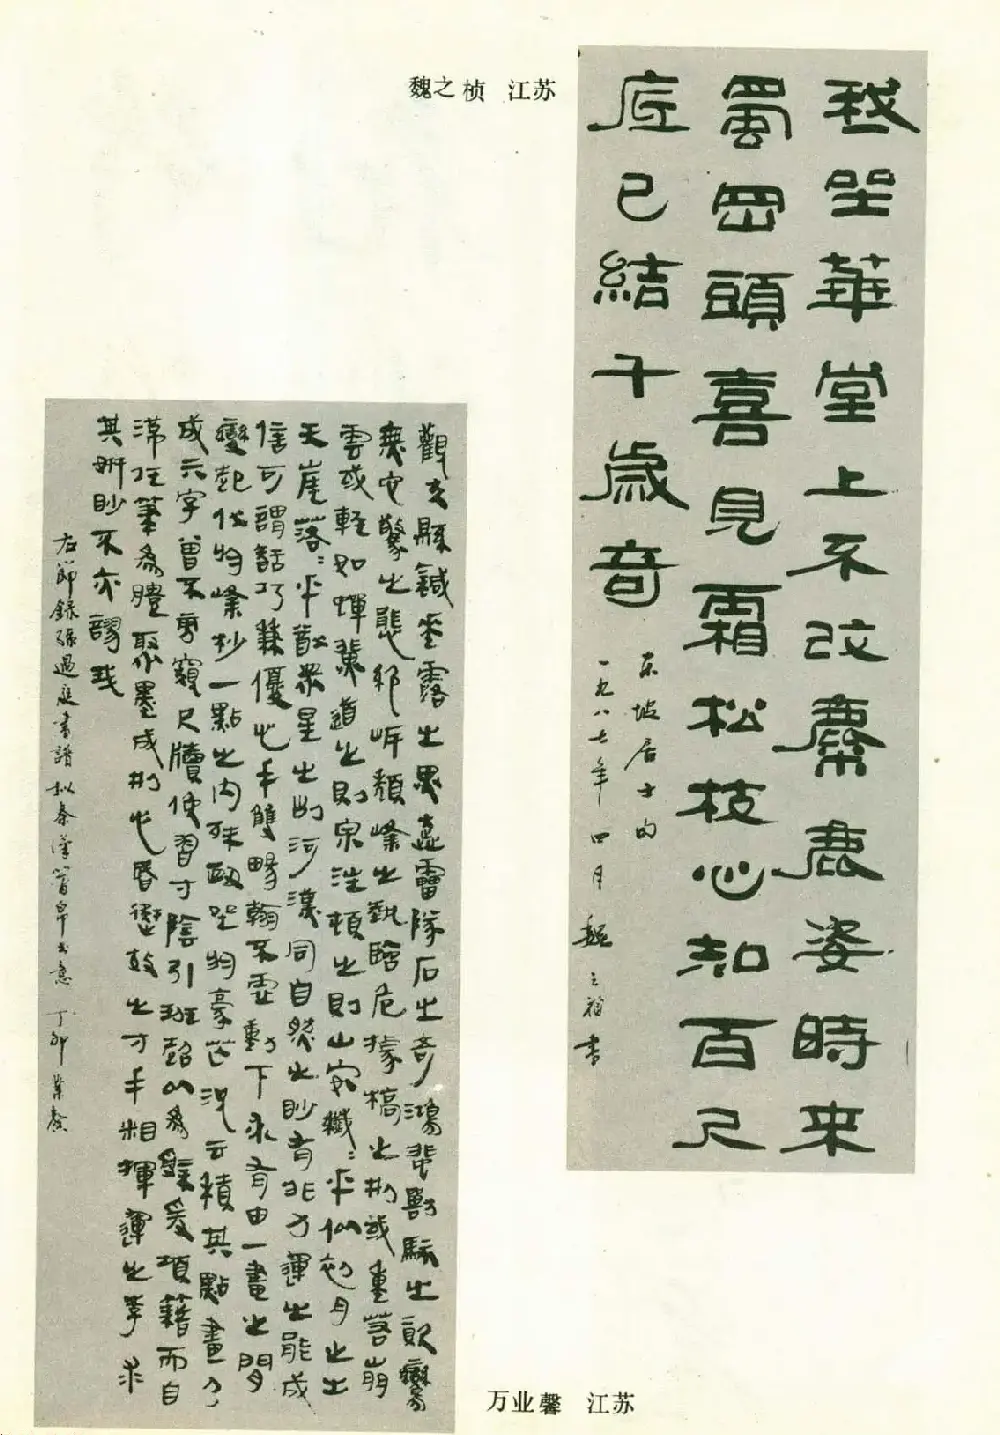 魏之桢 江苏
我坐華堂上不改麋鹿姿時来
蜀岡頭喜見霜松枝心知百尺
底已結千歲奇
东坡居士句
一九八七年四月魏之禎書
觀夫縣鍼垂露之異奔雷隊石之奇鴻飛獸駭之資鸞
舞蛇驚之態絕岸頹峰之勢臨危據槁之形或重若崩
雲或輕如蟬翼導之則泉注頓之則山安纖:乎似初月之出
天崖落:乎猷衆星之列河漢同自然之妙有非力運之能成
信可謂智巧兼優心手雙暢翰不虛動下必有由一畫之間
變起伏於峰杪一點之内殊衄挫於豪芒況云積其點畫乃
成亓字曾不旁窺尺牘俯習寸陰引班超以為辭援項籍而自
滿任筆為體聚墨成形心昏擬效之方手迷揮運之理求
其妍妙不亦謬哉
右節錄孫過庭書譜擬秦漢簡帛書意 丁卯 業馨
万业馨 江苏